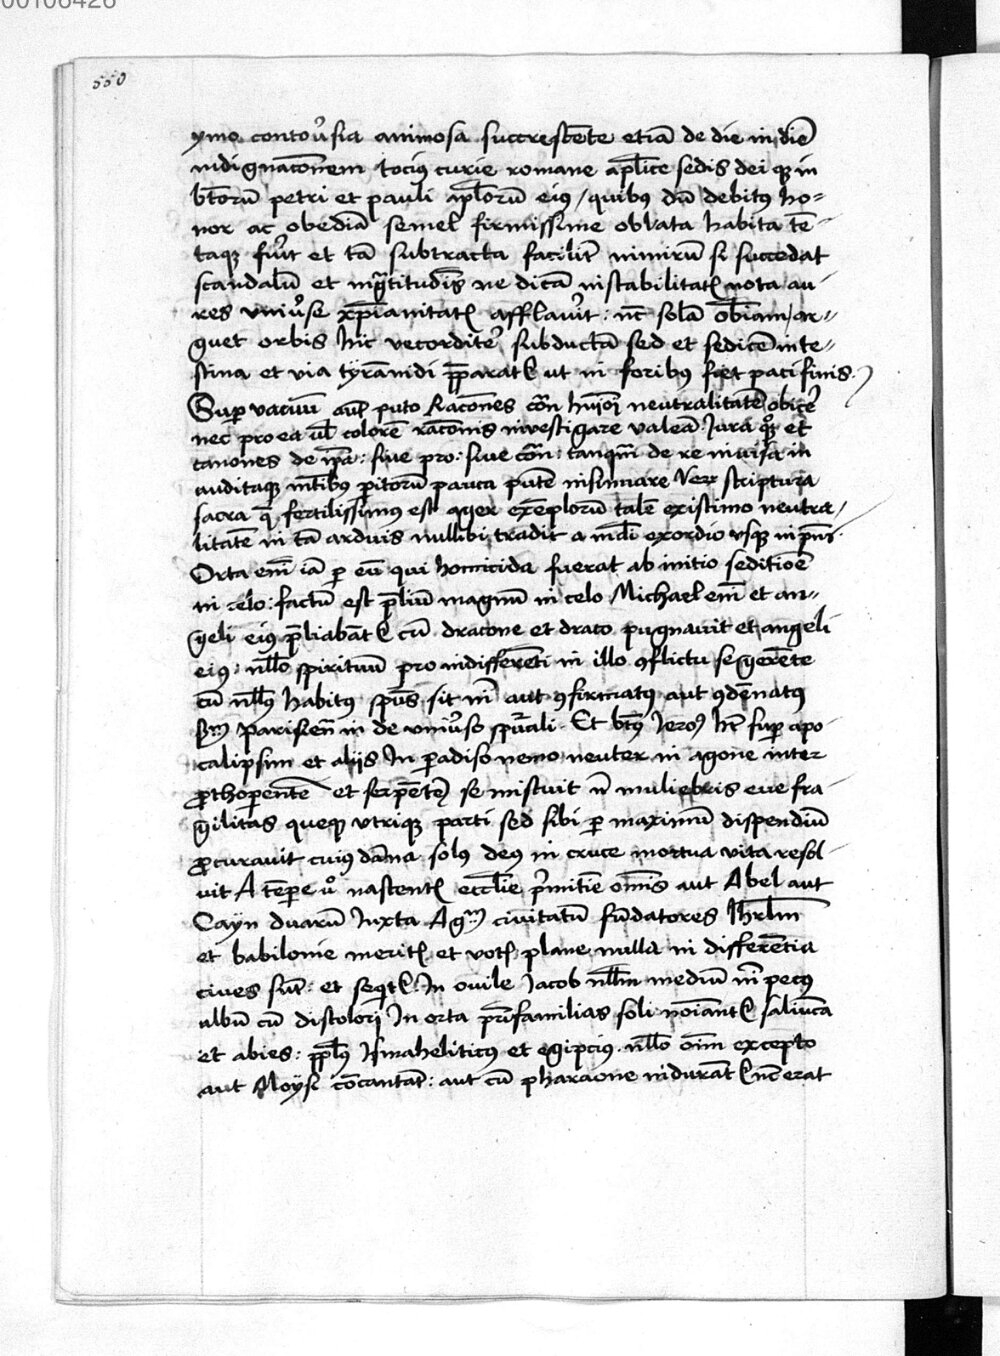 00106426
550
ymo contou'sia animosa succresce̅te etia̅ de die in die̅
indignaco̅nem tocius curie romane ap̅lice sedis dei q̨ in
b̅toru̅ petri et pauli ap̅loru̅ eius / quibus du̅ debitus ho=
nor ac obedia̅ semel firmissime oblata habita te̅-
taq̨ fu'it et ta̅ subtracta facilit̅ nimiru̅ si succedat
scandalu̅ et ingr̅titudi̅s ne dica̅ instabilitat̨ nota au-
res vniu'se xp̅ianitat̨ afflau'it : nc̅ sola̅ ob̅iam / ar-
guet orbis hic vecordite' subducta̅ sed et sedic̅em inte-
stina et via tyra̅nidi p̅parat̨ ut in foribus s̅et paci finis.
Sup vacuu̅ aut̅ puto Raco̅nes co̅n hui̅oi neutralitate̅ obice'
nec pro ea ul̅ colore̅ raco̅nis investigare valea̅ Jura q̨ et
canones de ip̅a : siue pro : siue co̅n : tanqua̅ de re inuisa in
auditaq̨ me̅tibus pitoru̅ pauca pute̅ insinuare Vero scriptura
sacra q̅ fertilissimus est ager exe̅ploru̅ tale̅ existimo neutra-
litate̅ in ta̅ arduis nullibi tradit a mu̅di exordio vsq̨ in p̅ns.
Orta em̅ ia̅ p eu̅ qui homicida fuerat ab initio seditioe̅
in celo : factu̅ est p̅liu̅ magnu̅ in celo Michael em̅ et an-
geli eius p̅liaba̅t̨ cu̅ dracone et draco pugnauit et angeli
eius : nll̅o spirituu̅ pro indiffere̅ti in illo 9flictu se gere̅te
cu̅ nll̅us habitus sp̅us sit ni̅ aut 9firmatus aut 9de̅natus
Parisien̅ in de vniu'so sp̅uali. Et b̅tus Jero9 h̅t sup apo-
calipsim et aliis In padiso nemo neuter in agone inter
p̅thopente̅ et serpe̅te̅ se miscuit n̅ muliebris eue fra-
gilitas queq̨ vtriq̨ parti sed sibi p maximu̅ dispendiu̅
p̅curauit cuius da̅na solus deus in cruce mortua vita resol-
uit A te̅pe u'o nascent̨ eccl̅ie p'mitie om̅s aut Abel aut
Cayn duaru̅ Juxta Ag̅m ciuitatu̅ fu̅datores Jhrl̅m
et babilonie merit̨ et vot̨ plane nulla in differe̅tia
ciues su̅t : et seq̅t̨ : In ouile Jacob nll̅m mediu̅ ni̅ pecus
albu̅ cu̅ discolori In orta pr̅isfamilias soli noia̅nt̨ saliu̅ca
et abies : pp̅lus Ismaheliticus et egipcius nll̅o om̅i excepto
aut Moysi co̅cantat : aut cu̅ pharaone indurat̨ nc̅ erat